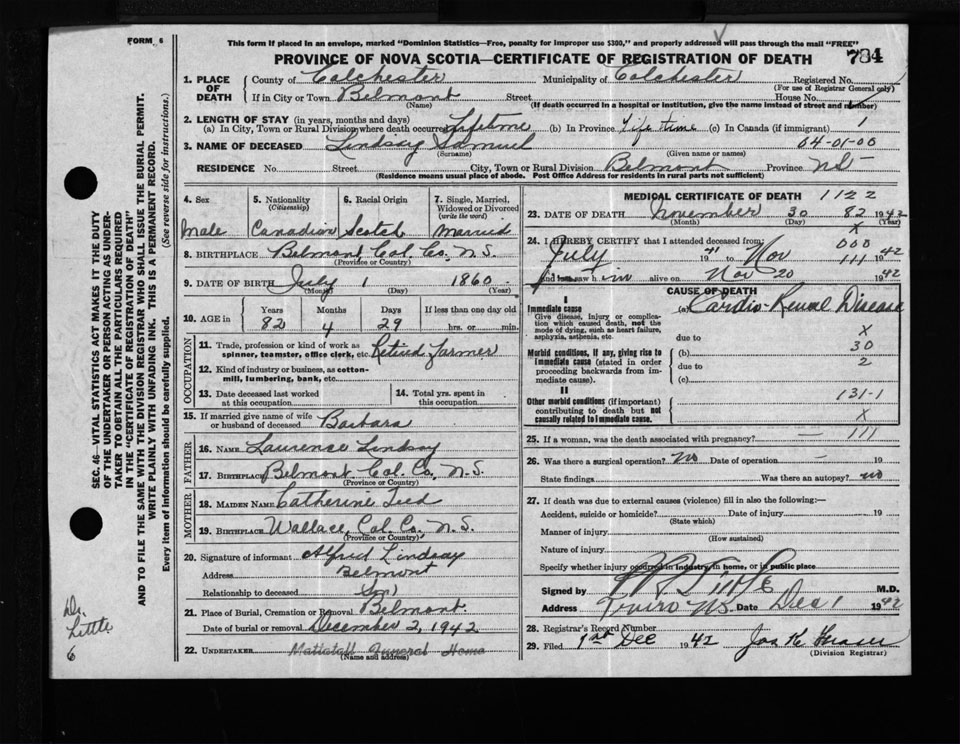 FORM 6
This form if placed in an envelope, marked "Dominion Statistics—Free, penalty for improper use $300," and properly addressed will pass through the mail "FREE"
PROVINCE OF NOVA SCOTIA—CERTIFICATE OF REGISTRATION OF DEATH
784
1. PLACE OF DEATH
County of Colchester Municipality of Colchester Registered No.
(For use of Registrar General only)
If in City or Town Belmont Street House No.
(Name) (If death occurred in a hospital or institution, give the name instead of street and number)
2. LENGTH OF STAY (in years, months and days)
(a) In City, Town or Rural Division where death occurred Lifetime (b) In Province Life time (c) In Canada (if immigrant) 1
3. NAME OF DECEASED Lindsay Samuel 04-01-00
(Surname) (Given name or names)
RESIDENCE No. Street City, Town or Rural Division Belmont Province N.S.
(Residence means usual place of abode. Post Office Address for residents in rural parts not sufficient)
4. Sex
Male
5. Nationality
(Citizenship)
Canadian
6. Racial Origin
Scotch
7. Single, Married, Widowed or Divorced
(write the word)
Married
8. BIRTHPLACE Belmont Col. Co. N.S.
(Province or Country)
9. DATE OF BIRTH July 1 1860
(Month) (Day) (Year)
10. AGE in Years Months Days If less than one day old
82 4 29 hrs. or min.
OCCUPATION
11. Trade, profession or kind of work as spinner, teamster, office clerk, etc. Retired Farmer
12. Kind of industry or business, as cotton-mill, lumbering, bank, etc.
13. Date deceased last worked at this occupation
14. Total yrs. spent in this occupation
15. If married give name of wife or husband of deceased Barbara
FATHER
16. NAME Laurence Lindsay
17. BIRTHPLACE Belmont Col. Co. N.S.
(Province or Country)
MOTHER
18. MAIDEN NAME Catherine
19. BIRTHPLACE Wallace, Col. Co, N.S.
(Province or Country)
20. Signature of informant Alfred Lindsay
Address Belmont
Relationship to deceased Son
21. Place of Burial, Cremation or Removal Belmont
Date of burial or removal December 2, 1942
22. UNDERTAKER Mattatall Funeral Home
(Name and Address)
MEDICAL CERTIFICATE OF DEATH 1122
23. DATE OF DEATH November 30 82 1942
(Month) (Day) (Year)
X
24. I HEREBY CERTIFY that I attended deceased from: 000
July 1941 to Nov 111 1942
and last saw him alive on Nov 20 1942
CAUSE OF DEATH
I
Immediate cause (a) Cardio-Renal Disease
Give disease, injury or complication which caused death, not the mode of dying, such as heart failure, asphyxia, asthenia, etc.
due to X
Morbid conditions, if any, giving rise to immediate cause (stated in order proceeding backwards from immediate cause).
(b) 30
due to 2
(c)
II
131-1
Other morbid conditions (if important) contributing to death but not causally related to immediate cause.
X
25. If a woman, was the death associated with pregnancy? — 111
26. Was there a surgical operation? No Date of operation — 19
State findings Was there an autopsy? no
27. If death was due to external causes (violence) fill in also the following:—
Accident, suicide or homicide? Date of injury 19
(State which)
Manner of injury
(How sustained)
Nature of injury
Specify whether injury occurred in industry, in home, or in public place
Signed by M.D.
Address Truro N.S. Date Dec 1 1942
28. Registrar's Record Number
29. Filed 1st Dec 1942 Jas K
(Division Registrar)
SEC. 46—VITAL STATISTICS ACT MAKES IT THE DUTY
OF THE UNDERTAKER OR PERSON ACTING AS UNDER-
TAKER TO OBTAIN ALL THE PARTICULARS REQUIRED
IN THE "CERTIFICATE OF REGISTRATION OF DEATH"
AND TO FILE THE SAME WITH THE DIVISION REGISTRAR WHO SHALL ISSUE THE BURIAL PERMIT.
WRITE PLAINLY WITH UNFADING INK. THIS IS A PERMANENT RECORD.
Every item of information should be carefully supplied. (See reverse side for instructions.)
Dr.
Little
6